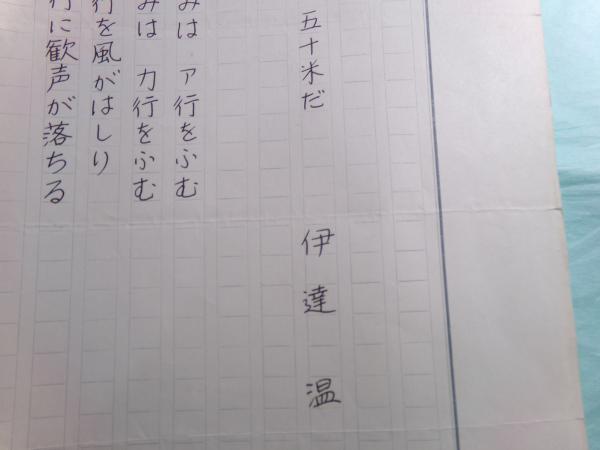 五十米だ 伊達 温
みは ア行をふむ
みは カ行をふむ
行を風がはしり
行に歓声が落ちる